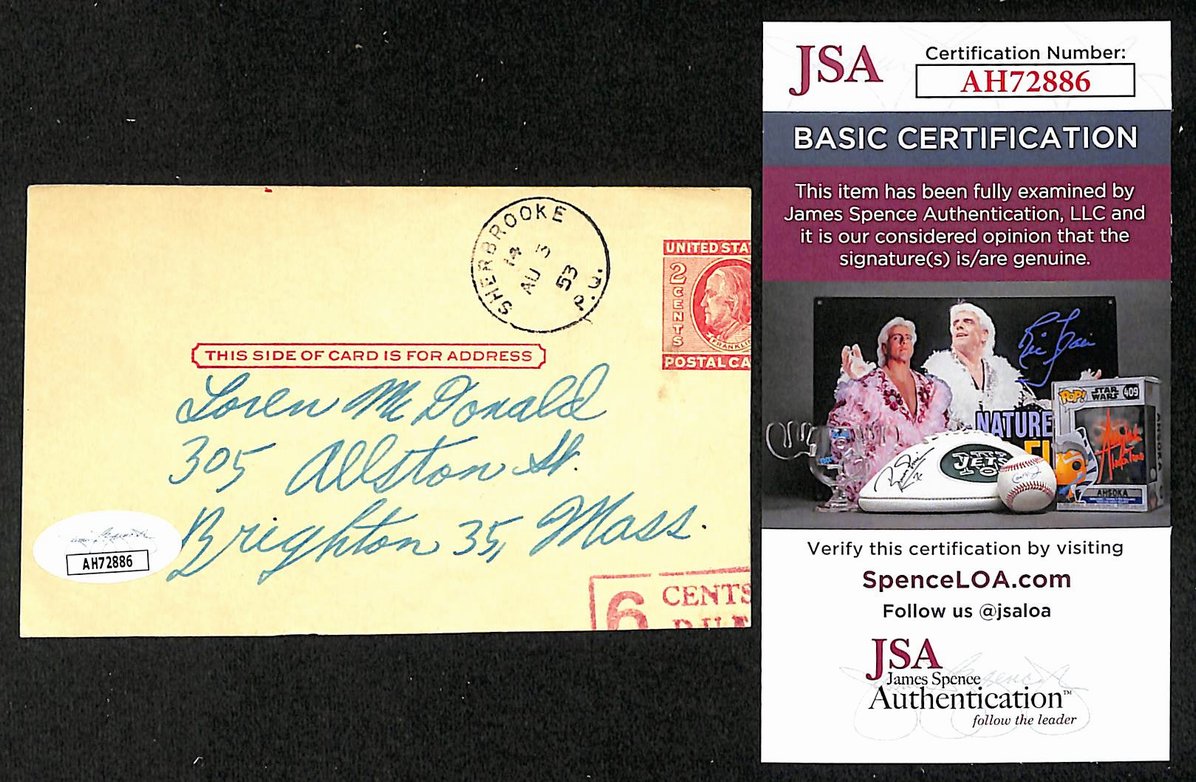 SHERBROOKE
14
AU 3
53
P.Q.
UNITED STA
2 CENTS
FRANKLIN
POSTAL CA
THIS SIDE OF CARD IS FOR ADDRESS
Loren McDonald
305 Allston St.
Brighton 35, Mass.
AH72886
6 CENTS
DUE
JSA
Certification Number:
AH72886
BASIC CERTIFICATION
This item has been fully examined by
James Spence Authentication, LLC and
it is our considered opinion that the
signature(s) is/are genuine.
NATURE
JETS
POP!
STAR WARS
409
AHSOKA
Verify this certification by visiting
SpenceLOA.com
Follow us @jsaloa
JSA
James Spence
Authentication™
follow the leader